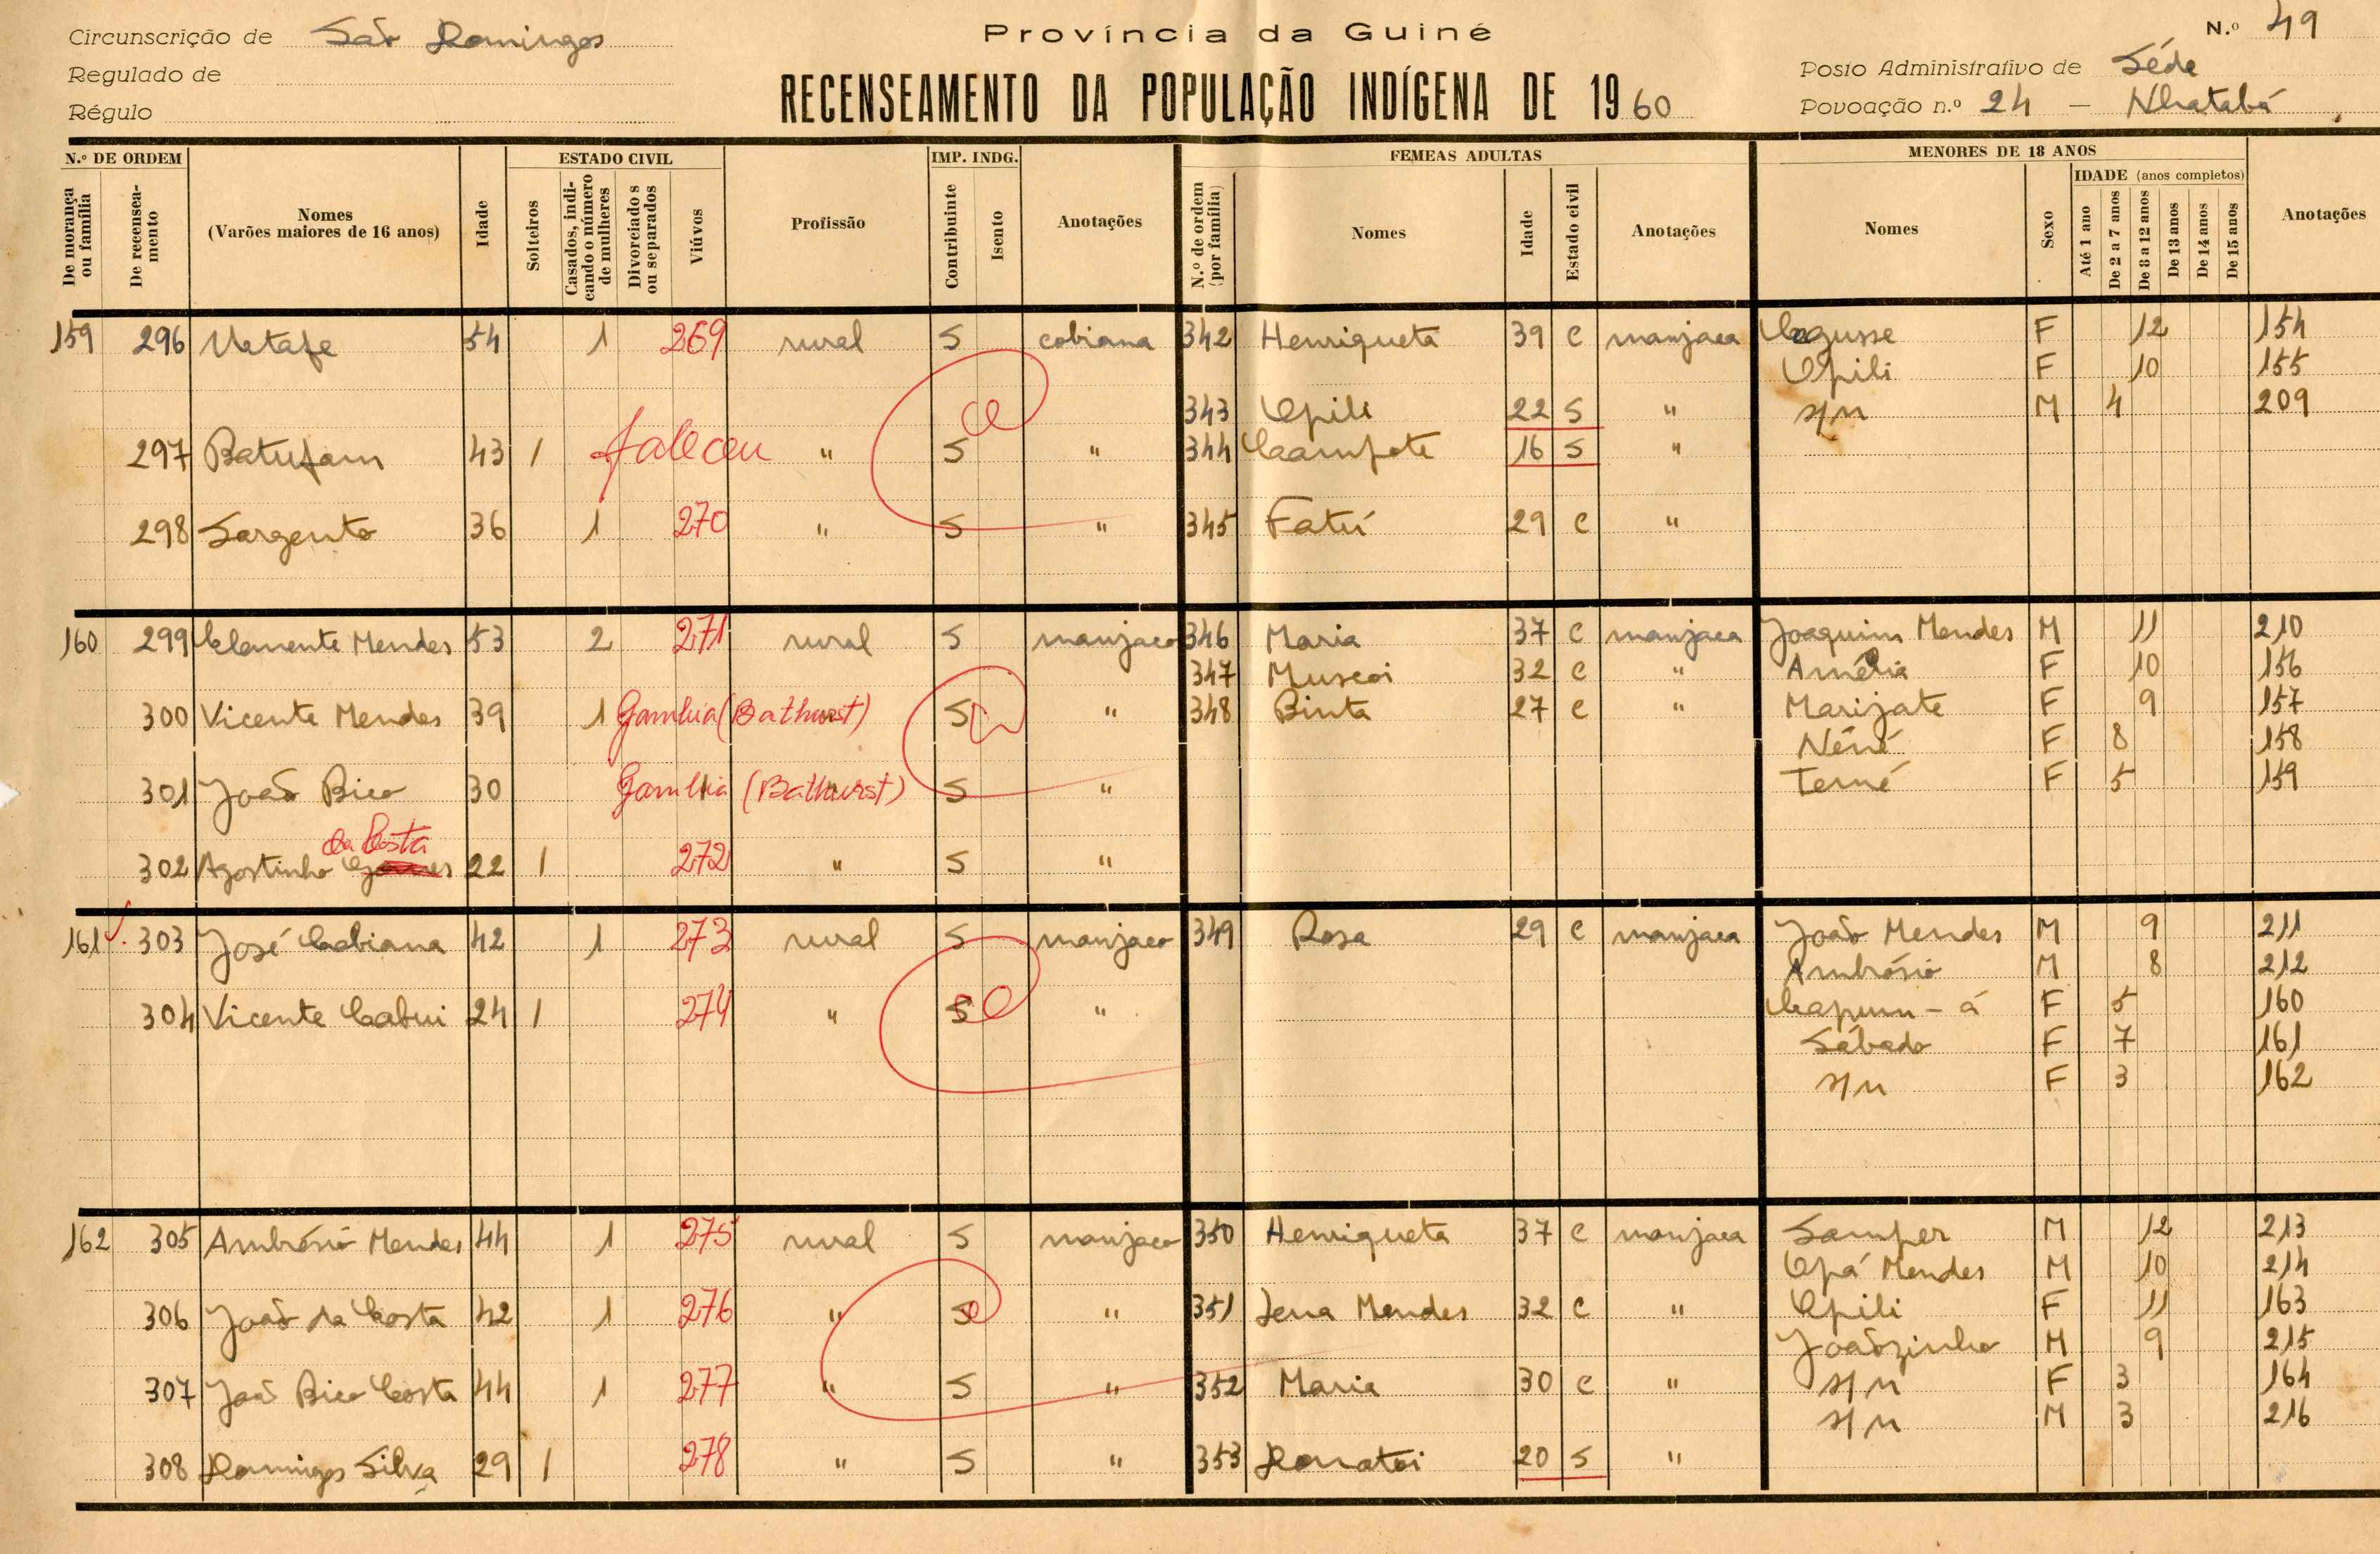 Circunscrição de São Domingos
Regulado de
Régulo
Província da Guiné
RECENSEAMENTO DA POPULAÇÃO INDÍGENA DE 1960
N.º 49
Posto Administrativo de Séde
Povoação n.º 24 — Nhatabá
N.º DE ORDEM ESTADO CIVIL IMP. INDG. FEMEAS ADULTAS MENORES DE 18 ANOS
De morança ou família De recenseamento Nomes (Varões maiores de 16 anos) Idade Solteiros Casados, indicando o número de mulheres Divorciados ou separados Viúvos Profissão Contribuinte Isento Anotações N.º de ordem (por família) Nomes Idade Estado civil Anotações Nomes Sexo IDADE (anos completos) Até 1 ano De 2 a 7 anos De 8 a 12 anos De 13 anos De 14 anos De 15 anos Anotações
159 296 54 1 269 rural S cobiana 342 Henriqueta 39 c manjaca F 12 154
Upili F 10 155
343 Upili 22 S " s/n M 4 209
297 Batufam 43 1 faleceu " S " 344 Campote 16 S "
298 Sargento 36 1 270 " S " 345 Fatú 29 c "
160 299 Clemente Mendes 53 2 271 rural S manjaco 346 Maria 37 c manjaca Joaquim Mendes M 11 210
347 Muscoi 32 c " Amélia F 10 156
300 Vicente Mendes 39 1 Gambia (Bathurst) " S " 348 Binta 27 c " Marijate F 9 157
Néné F 8 158
301 João Bico 30 Gambia (Bathurst) " S " Terné F 5 159
da Costa
302 Agostinho Gomes 22 1 272 " S "
161 303 José Cabiana 42 1 273 rural S manjaco 349 Rosa 29 c manjaca João Mendes M 9 211
Ambrósio M 8 212
304 Vicente Cabui 24 1 274 " S " Capum - á F 5 160
Sábado F 7 161
s/n F 3 162
162 305 Ambrósio Mendes 44 1 275 rural S manjaco 350 Henriqueta 37 c manjaca Samper M 12 213
Upá Mendes M 10 214
306 João da Costa 42 1 276 " S " 351 Lena Mendes 32 c " Upili F 11 163
Joãozinho M 9 215
307 João Bico Costa 44 1 277 " S " 352 Maria 30 c " s/n F 3 164
s/n M 3 216
308 Domingos Silva 29 1 278 " S " 353 Donatoi 20 S "